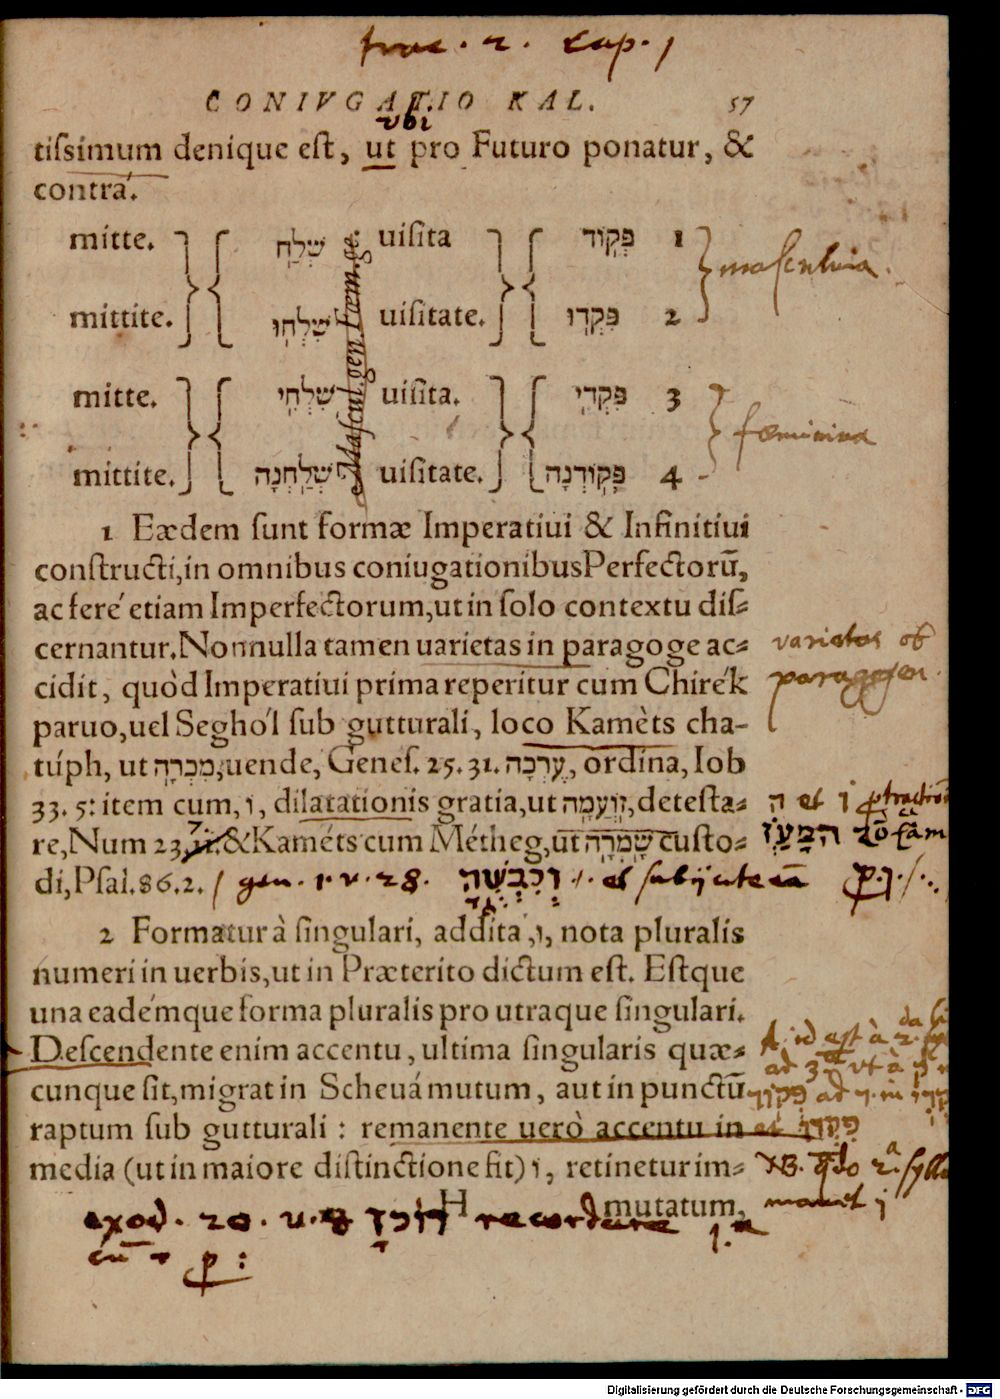 CONIVGATIO KAL. 57
vbi
tiſsimum denique eſt, ut pro Futuro ponatur, &
contrà.
mitte. שְׁלַח uiſita פְּקוֹד 1 maſculina.
mittite. שִׁלְחוּ uiſitate. פִּקְדוּ 2
Maſcul. gen. fœm. ge.
mitte. שִׁלְחִי uiſita. פִּקְדִי 3 fœminina
mittite. שְׁלַחְנָה uiſitate. פְּקוֹדְנָה 4
1 Eædem ſunt formæ Imperatiui & Infinitiui
conſtructi, in omnibus coniugationibus Perfectorū,
ac ferè etiam Imperfectorum, ut in ſolo contextu diſ-
cernantur. Nonnulla tamen uarietas in paragoge ac-
varietas ob
cidit, quòd Imperatiui prima reperitur cum Chirék
paragogen
paruo, uel Seghól ſub gutturali, loco Kamèts cha-
túph, ut מִכְרָה, uende, Geneſ. 25. 31. עֶרְכָה, ordina, Iob
33. 5: item cum, ו, dilatationis gratia, ut זוֹעֲמָה, deteſta-
re, Num 23, 11. & Kaméts cum Métheg, ut שָׁמְרָה cuſto-
7.
di, Pſal. 86. 2. gen. 1. v. 28. וְכִבְשֻׁהָ
2 Formatur à ſingulari, addita, ו, nota pluralis
numeri in uerbis, ut in Præterito dictum eſt. Eſtque
una eadémque forma pluralis pro utraque ſingulari.
Deſcendente enim accentu, ultima ſingularis quæ-
cunque ſit, migrat in Scheuá mutum, aut in punctū
raptum ſub gutturali: remanente uerò accentu in
media (ut in maiore diſtinctione fit) ו, retinetur im-
H mutatum,
exod. 20. v. 8 זָכוֹר recordare